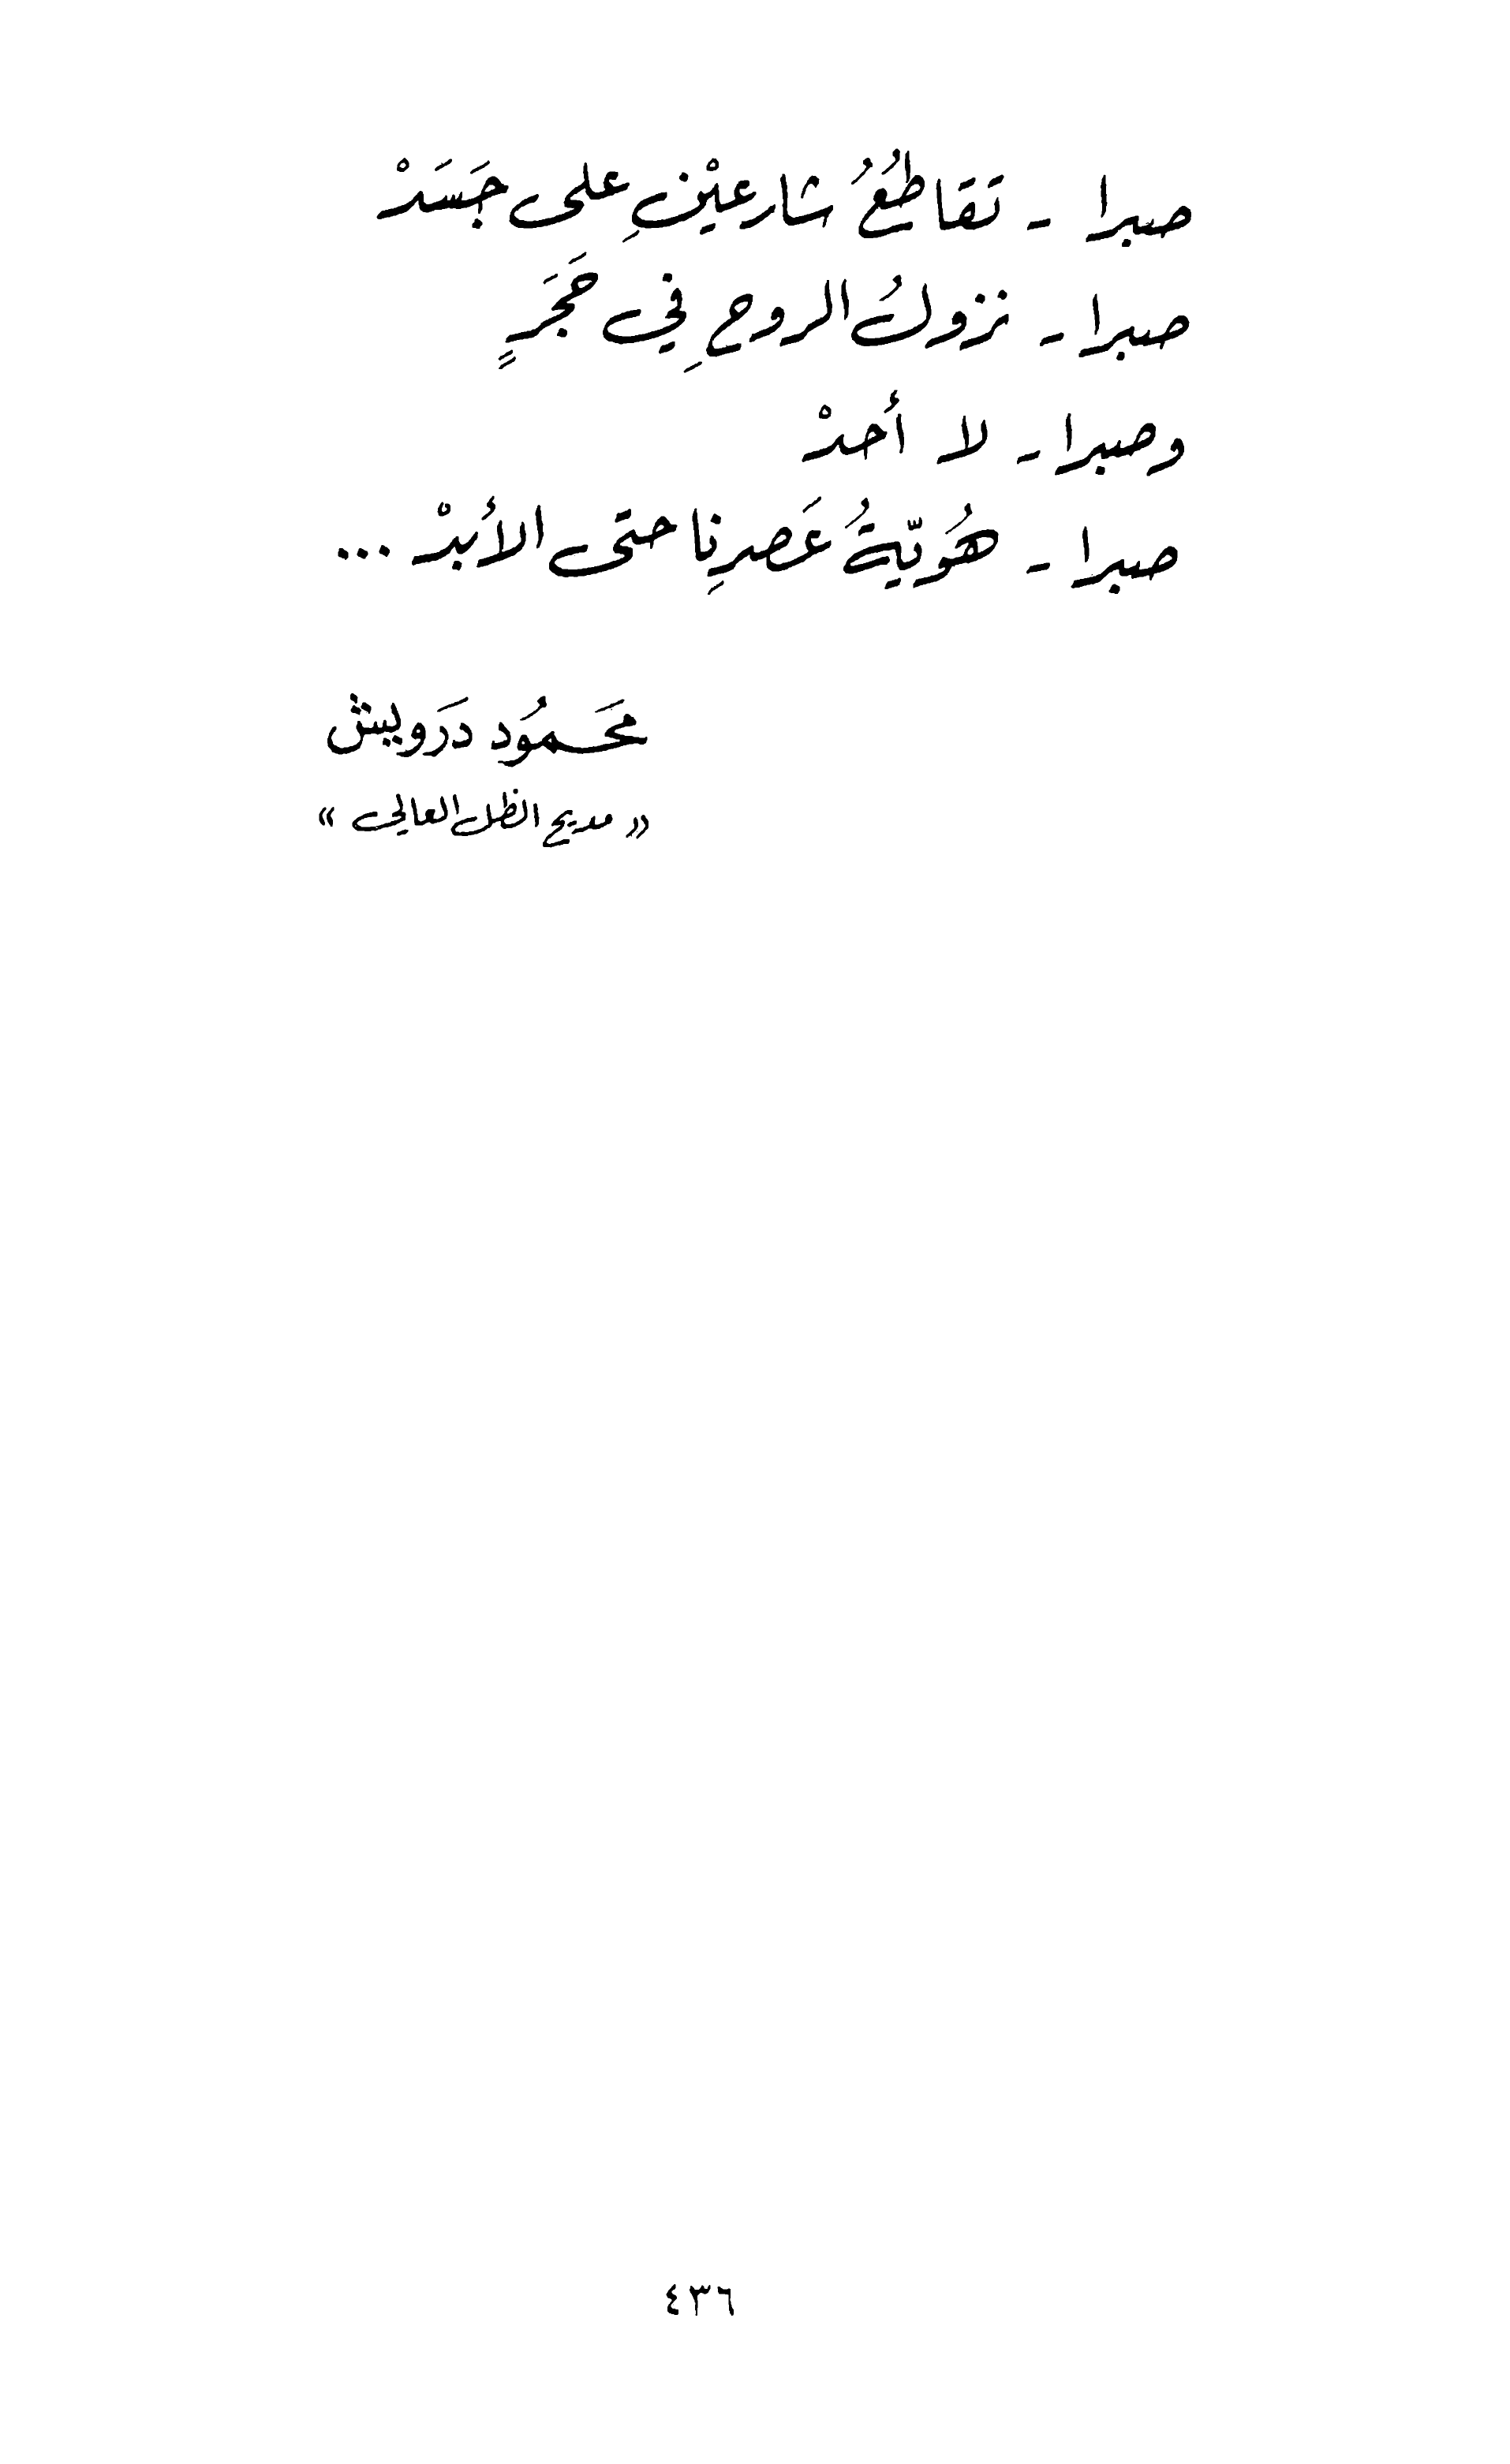 صبرا ـ تَقَاطُعُ شارعيْنِ على جَسَدْ
صبرا ـ نزولُ الروحِ في حَجَرٍ
وصبرا ـ لا أَحدْ
صبرا ـ هُوِيّةُ عَصرنِا حتى الأَبدْ ...
مَحَـمُود دَرَويش
« مديح الظل العالي »
٤٣٦